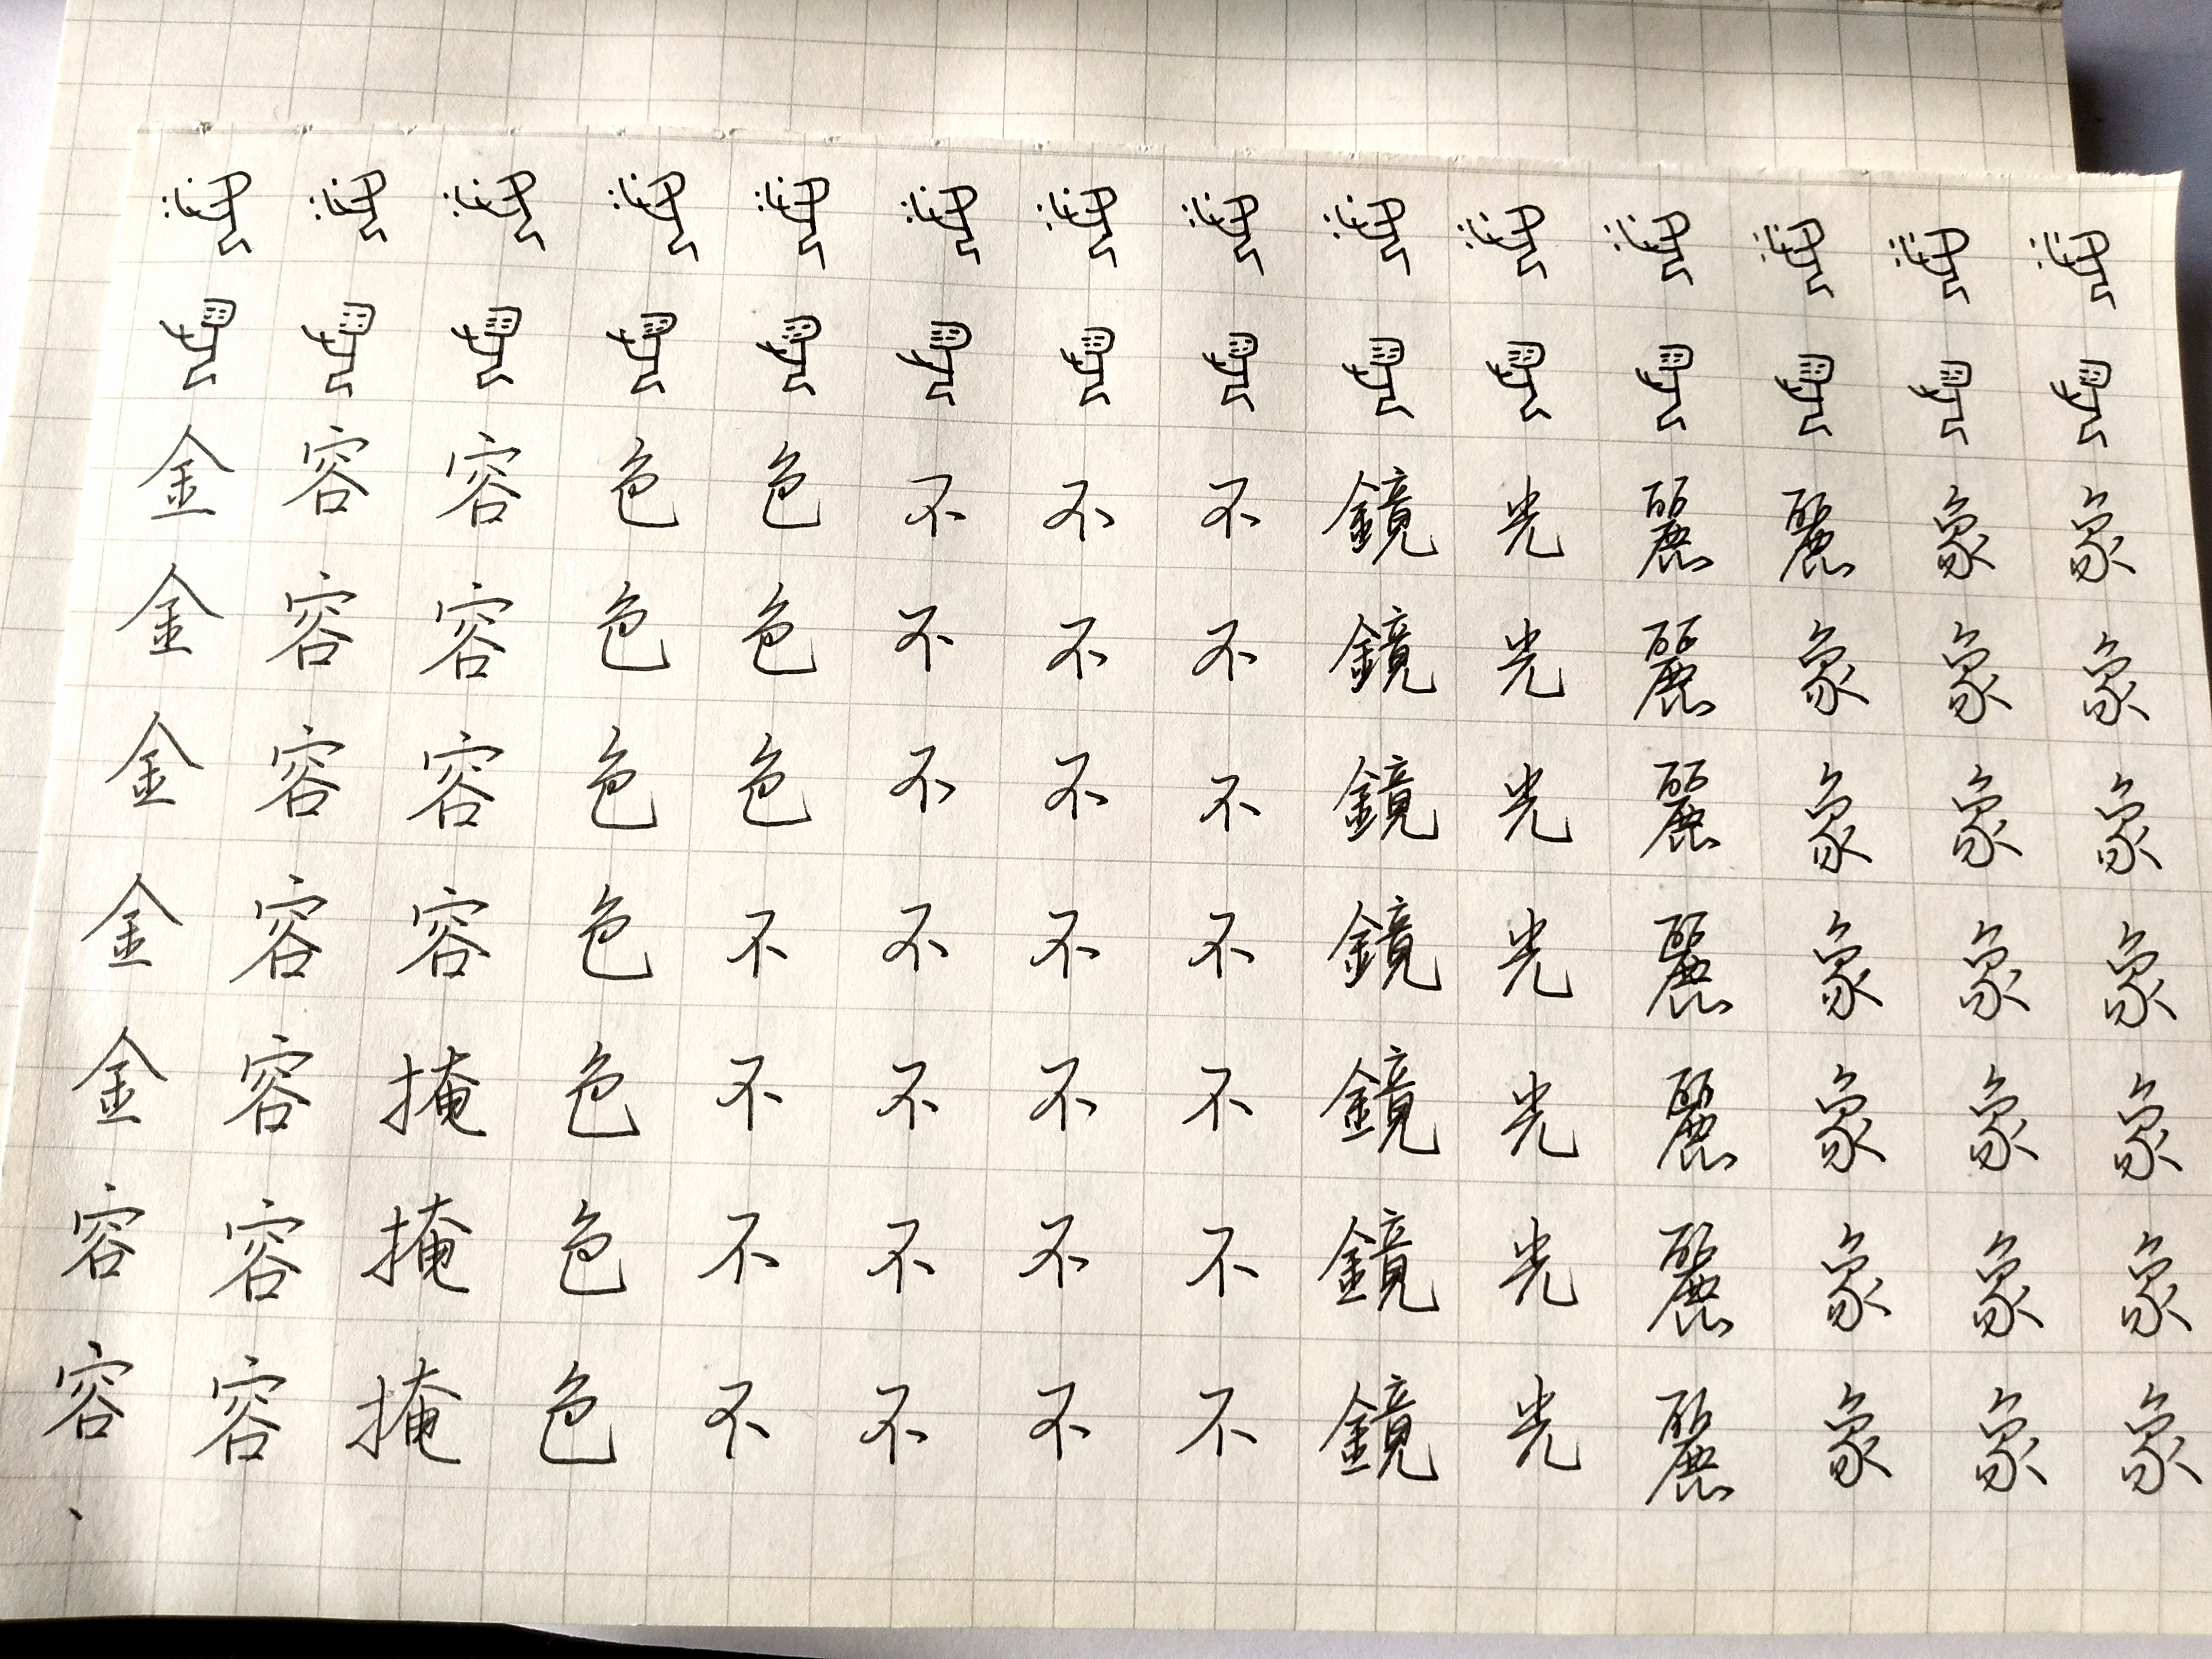 金金金金金容容
容容容容容容容
容容容容掩掩掩
色色色色色色色
色色色不不不不
不不不不不不不
不不不不不不不
不不不不不不不
鏡鏡鏡鏡鏡鏡鏡
光光光光光光光
麗麗麗麗麗麗麗
麗象象象象象象
象象象象象象象
象象象象象象象